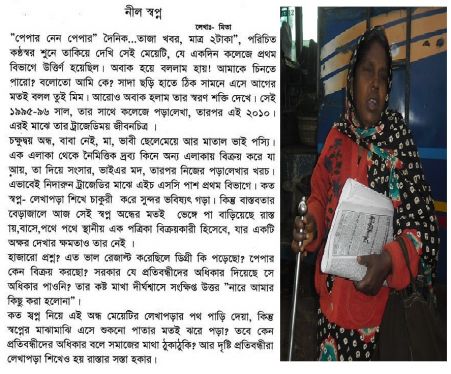 নীল স্বপ্ন
লেখাঃ- মিতা
"পেপার নেন পেপার" দৈনিক...তাজা খবর, মাত্র ২টাকা", পরিচিত
কণ্ঠস্বর শুনে তাকিয়ে দেখি সেই মেয়েটি, যে একদিন কলেজে প্রথম
বিভাগে উত্তির্ণ হয়েছিল। অবাক হয়ে বললাম হায়! আমাকে চিনতে
পারো? বলোতো আমি কে? সাদা ছড়ি হাতে ঠিক সামনে এসে আগের
মতই বলল তুই মিম। আরোও অবাক হলাম তার স্বরণ শক্তি দেখে। সেই
১৯৯৫-৯৬ সাল, তার সাথে কলেজে পড়ালেখা, তারপর এই ২০১০।
এরই মাঝে তার ট্রাজেডিময় জীবনচিত্র ।
চক্ষুদ্বয় অন্ধ, বাবা নেই, মা, ভাবী ছেলেমেয়ে আর মাতাল ভাই পস্যি।
এক এলাকা থেকে নৈমিত্তিক দ্রব্য কিনে অন্য এলাকায় বিক্রয় করে যা
আয়, তা দিয়ে সংসার, ভাইএর মদ, তারপর নিজের পড়ালেখার খরচ।
এভাবেই নিদারুন ট্রাজেডির মাঝে এইচ এসসি পাশ প্রথম বিভাগে। কত
স্বপ্ন- লেখাপড়া শিখে চাকুরী করে সুন্দর ভবিষ্যৎ গড়া। কিন্তু বাস্তবতার
বেড়াজালে আজ সেই স্বপ্ন অন্ধের মতই ভেঙ্গে পা বাড়িয়েছে রাস্তা
য়,বাসে,পথে পথে স্থানীয় এক পত্রিকা বিক্রয়কারী হিসেবে, যার একটি
অক্ষর দেখার ক্ষমতাও তার নেই ।
হাজারো প্রশ্ন? এত ভাল রেজাল্ট করেছিলে ডিগ্রী কি পড়েছো? পেপার
কেন বিক্রয় করছো? সরকার যে প্রতিবন্ধীদের অধিকার দিয়েছে সে
অধিকার পাওনি? তার কষ্ট মাখা দীর্ঘশ্বাসে সংক্ষিপ্ত উত্তর "নারে আমার
কিছু করা হলোনা"।
কত স্বপ্ন নিয়ে এই অন্ধ মেয়েটির লেখাপড়ার পথ পাড়ি দেয়া, কিন্তু
স্বপ্নের মাঝামাঝি এসে শুকনো পাতার মতই ঝরে পড়া? তবে কেন
প্রতিবন্ধীদের অধিকার বলে সমাজের মাথা ঠুকাঠুকি? আর দৃষ্টি প্রতিবন্ধীরা
লেখাপড়া শিখেও হয় রাস্তার সস্তা হকার।